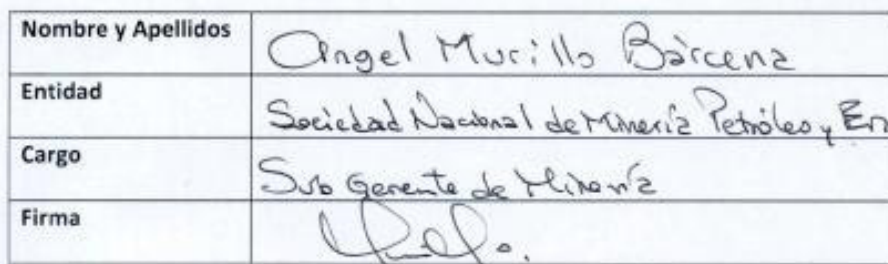 Nombre y Apellidos Angel Murillo Bárcena
Entidad Sociedad Nacional de Minería Petróleo y En
Cargo Sub Gerente de Minería
Firma